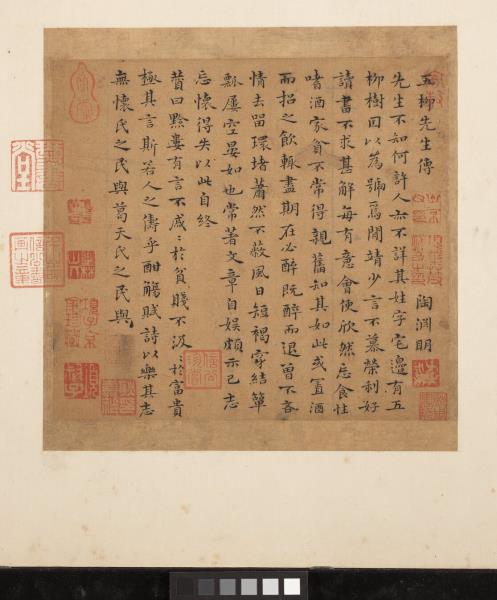 五柳先生傳 陶淵明
先生不知何許人亦不詳其姓字宅邊有五
柳樹因以為號焉閒靖少言不慕榮利好
讀書不求甚解每有意會便欣然忘食性
嗜酒家貧不常得親舊知其如此或置酒
而招之飲輒盡期在必醉既醉而退曾不吝
情去留環堵蕭然不蔽風日短褐穿結簞
瓢屢空晏如也常著文章自娛頗示己志
忘懷得失以此自終
贊曰黔婁有言不戚〻於貧賤不汲〻於富貴
極其言斯若人之儔乎酣觴賦詩以樂其志
無懷氏之民與葛天氏之民與